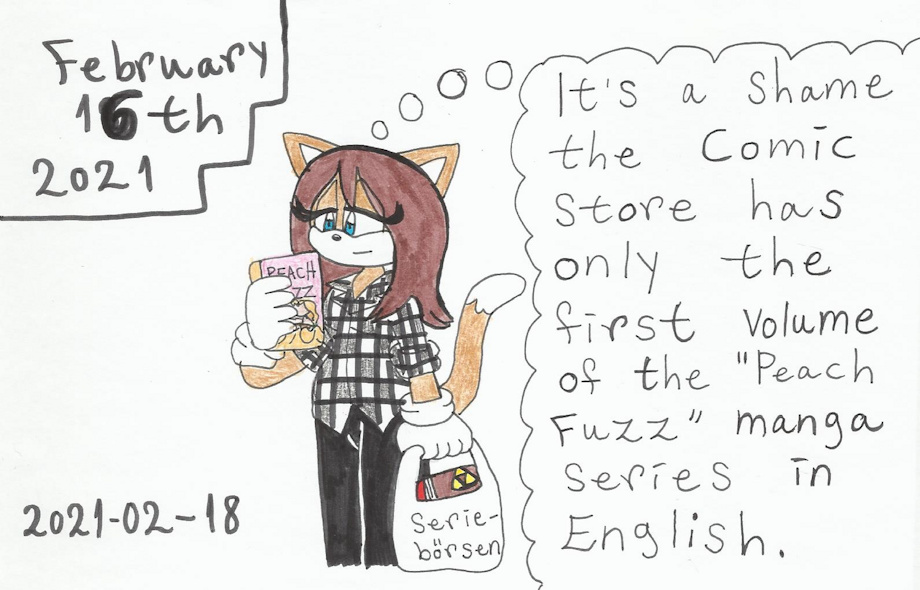 February
16th
2021
It's a shame
the Comic
Store has
only the
first volume
of the "Peach
Fuzz" manga
series in
English.
PEACH
ZZ
Serie-
börsen
2021-02-18